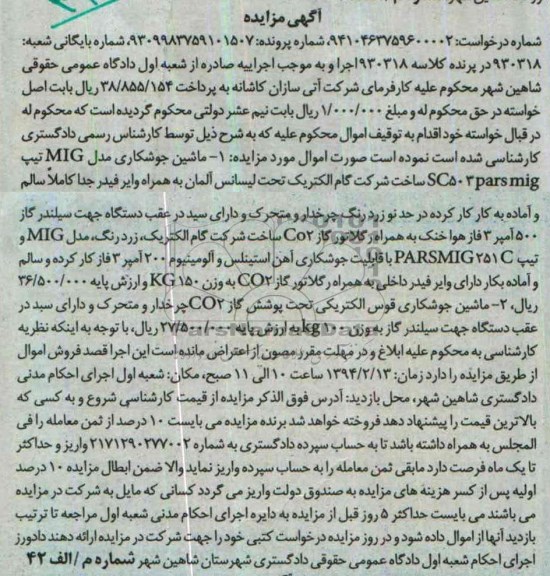 آگهی مزایده
شماره درخواست: ۹۴۱۰۴۶۳۷۵۹۶۰۰۰۰۲، شماره پرونده: ۹۳۰۹۹۸۳۷۵۹۱۰۱۵۰۷، شماره بایگانی شعبه:
۹۳۰۳۱۸ در پرنده کلاسه ۹۳۰۳۱۸ اجرا و به موجب اجراییه صادره از شعبه اول دادگاه عمومی حقوقی
شاهین شهر محکوم علیه کارفرمای شرکت آتی سازان کاشانه به پرداخت ۳۸/۸۵۵/۱۵۴ ریال بابت اصل
خواسته در حق محکوم له و مبلغ ۱/۰۰۰/۰۰۰ ریال بابت نیم عشر دولتی محکوم گردیده است که محکوم له
در قبال خواسته خود اقدام به توقیف اموال محکوم علیه که به شرح ذیل توسط کارشناس رسمی دادگستری
کارشناسی شده است نموده است صورت اموال مورد مزایده: ۱- ماشین جوشکاری مدل MIG تیپ
SC۵۰۳pars mig ساخت شرکت گام الکتریک تحت لیسانس آلمان به همراه وایر فیدر جدا کاملاً سالم
و آماده به کار کار کرده در حد نو زرد رنگ چرخدار و متحرک و دارای سبد در عقب دستگاه جهت سیلندر گاز
۵۰۰ آمپر ۳ فاز هوا خنک به همراه رگلاتور گاز Co۲ ساخت شرکت گام الکتریک، زرد رنگ، مدل MIG و
تیپ PARSMIG۲۵۱C با قابلیت جوشکاری آهن استینلس و آلومینیوم ۲۰۰ آمپر ۳ فاز کار کرده و سالم
و آماده بکار دارای وایر فیدر داخلی به همراه رگلاتور گاز CO۲ به وزن KG۱۵۰ و ارزش پایه ۳۶/۵۰۰/۰۰۰
ریال، ۲- ماشین جوشکاری قوس الکتریکی تحت پوشش گاز CO۲ چرخدار و متحرک و دارای سبد در
عقب دستگاه جهت سیلندر گاز به وزن kg۱۰۰ به ارزش پایه ۲۷/۵۰۰/۰۰۰ ریال، با توجه به اینکه نظریه
کارشناسی به محکوم علیه ابلاغ و در مهلت مقرر مصون از اعتراض مانده است این اجرا قصد فروش اموال
از طریق مزایده را دارد زمان: ۱۳۹۴/۲/۱۳ ساعت ۱۰ الی ۱۱ صبح، مکان: شعبه اول اجرای احکام مدنی
دادگستری شاهین شهر، محل بازدید: آدرس فوق الذکر مزایده از قیمت کارشناسی شروع و به کسی که
بالاترین قیمت را پیشنهاد دهد فروخته خواهد شد برنده مزایده می بایست ۱۰ درصد از ثمن معامله را فی
المجلس به همراه داشته باشد تا به حساب سپرده دادگستری به شماره ۲۱۷۱۲۹۰۲۷۷۰۰۲ واریز و حداکثر
تا یک ماه فرصت دارد مابقی ثمن معامله را به حساب سپرده واریز نماید والا ضمن ابطال مزایده ۱۰ درصد
اولیه پس از کسر هزینه های مزایده به صندوق دولت واریز می گردد کسانی که مایل به شرکت در مزایده
می باشند می بایست حداکثر ۵ روز قبل از مزایده به دایره اجرای احکام مدنی شعبه اول مراجعه تا ترتیب
بازدید آنها از اموال داده شود و در روز مزایده درخواست کتبی خود را جهت شرکت در مزایده ارائه دهند دادورز
اجرای احکام شعبه اول دادگاه عمومی حقوقی دادگستری شهرستان شاهین شهر شماره م / الف ۴۲